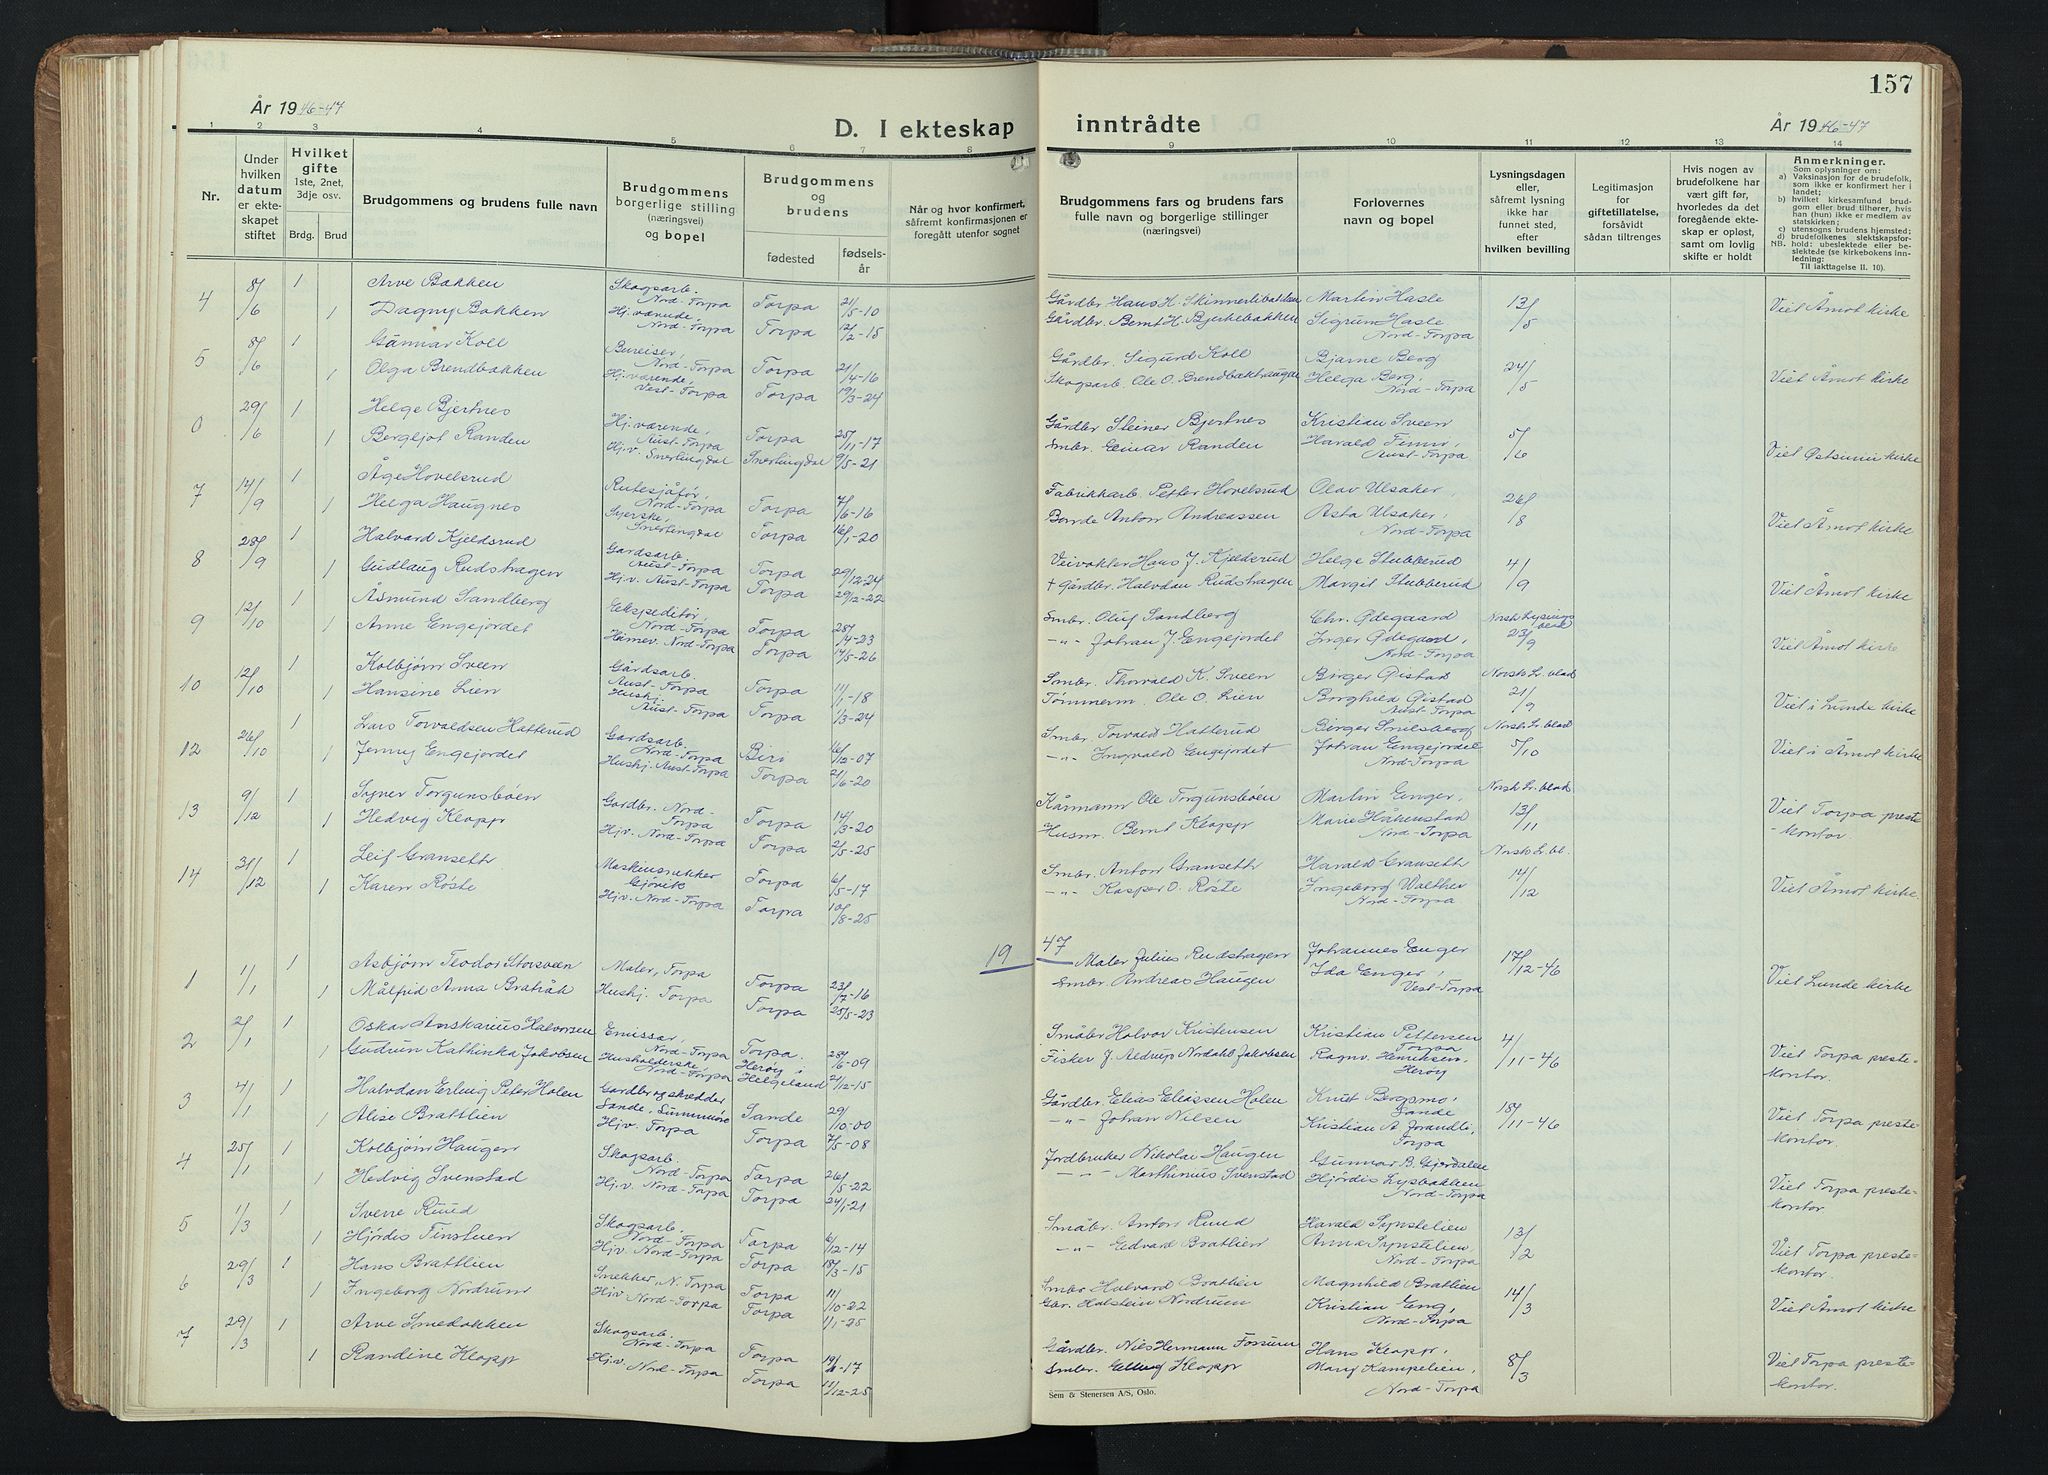 157
År 1946-47
D. I ekteskap inntrådte
År 1946-47
1 2 3 4 5 6 7 8 9 10 11 12 13 14
Nr.
Under hvilken datum er ekteskapet stiftet
Hvilket gifte 1ste, 2net, 3dje osv.
Brdg. Brud
Brudgommens og brudens fulle navn
Brudgommens borgerlige stilling (næringsvei) og bopel
Brudgommens og brudens
fødested
fødselsår
Når og hvor konfirmert, såfremt konfirmasjonen er foregått utenfor sognet
Brudgommens fars og brudens fars fulle navn og borgerlige stillinger (næringsvei)
Forlovernes navn og bopel
Lysningsdagen eller, såfremt lysning ikke har funnet sted, efter hvilken bevilling
Legitimasjon for giftetillatelse, forsåvidt sådan tiltrenges
Hvis nogen av brudefolkene har vært gift før, hvorledes da det foregående ekteskap er opløst, samt om lovlig skifte er holdt
Anmerkninger.
Som oplysninger om:
a) Vaksinasjon for de brudefolk, som ikke er konfirmert her i landet;
b) hvilket kirkesamfund brudgom eller brud tilhører, hvis han (hun) ikke er medlem av statskirken;
c) utensogns brudens hjemsted;
d) brudefolkenes slektskapsforhold: ubeslektede eller beslektede (se kirkebokens innledning;
NB. Til iakttagelse II. 10).
4 8/6 1 Arve Bakken Skogsarb. Nord-Torpa Torpa 21/5-10 Gårdbr. Hans H. Skinnerlibakken Martin Hasle 13/5 Viet Åmot kirke
1 Dagny Bakken Hj.værende, Nord-Torpa Torpa 12/2-15 Gårdbr. Bernt H. Bjerkebakken Sigrun Hasle Nord-Torpa
5 8/6 1 Gunnar Koll Bureiser, Nord-Torpa Torpa 21/4-16 Gårdbr. Sigurd Koll Bjarne Berg 24/5 Viet Åmot kirke
1 Olga Brendbakken Hj.værende, Vest-Torpa Torpa 19/3-24 Skogsarb. Ole O. Brendbakkhaugen Helga Berg, Nord-Torpa
0 29/6 1 Helge Bjertnes Hj.værende, Aust-Torpa Torpa 25/11-17 Gårdbr Steinar Bjertnes Kristian Sveen 5/6 Viet Østsinni kirke
1 Bergljot Randen Hj.v. Snertingdal Snertingdal 9/5-21 Smbr. Einar Randen Harald Finni, Aust-Torpa
7 14/9 1 Åge Hovelsrud Rutesjåfør, Nord-Torpa Torpa 7/6-16 Fabrikkarb. Petter Hovelsrud Olav Ulsaker, 26/8 Viet Åmot kirke
1 Helga Haugnes Syerske, Snertingdal Torpa 16/1-20 Bonde Anton Andreassen Asta Ulsaker, Nord-Torpa
8 28/9 1 Halvard Kjeldsrud Gardsarb. Aust-Torpa Torpa 29/12-24 Veivokter Hans J. Kjeldsrud Helge Stubberud 4/9 Viet Åmot kirke
1 Gudlaug Rudshagen Hj.v. Aust-Torpa Torpa 29/12-22 † Gårdbr. Halvdan Rudshagen Margit Stubberud
9 12/10 1 Åsmund Sandberg Ekspeditør, Nord-Torpa Torpa 28/4-23 Smbr. Oluf Sandberg Chr. Ødegaard Norsk Lysingsblad 23/9 Viet Åmot kirke
1 Anne Engejordet Heimev. Nord-Torpa Torpa 17/5-26 -"- Johan J. Engejordet Inger Ødegaard, Nord-Torpa
10 12/10 1 Kolbjørn Sveen Gårdsarb. Aust-Torpa Torpa 11/1-18 Smbr. Thorvald K. Sveen Birger Øistad Norsk L. blad 21/9 Viet i Lunde kirke
Hansine Lien Hushj. Aust-Torpa Torpa 1/3-24 Tømmerm. Ole O. Lien Borghild Øistad Aust-Torpa
12 26/10 1 Lars Torvaldsen Hatterud Gardsarb. Nord-Torpa Biri 16/12-07 Smbr. Torvald Hatterud Birger Smilsberg Norsk L. blad 5/10 Viet i Åmot kirke
1 Jenny Engejordet Hushj. Aust-Torpa Torpa 21/6-20 -"- Ingvald Engejordet Johan Engejordet Nord-Torpa
13 9/12 1 Sygner Torgunsbøen Gardbr. Nord-Torpa Torpa 14/3-20 Kårmann Ole Torgunsbøen Martin Enger, Norsk L. blad 13/11 Viet Torpa preste-kontor.
1 Hedvig Klopp Hjv. Nord-Torpa Torpa 2/5-25 Husm. Bernt Klopp Marie Håkenstad Nord-Torpa
14 31/12 1 Leif Gransett Maskinsnekker Gjøvik Torpa 6/5-17 Smbr. Anton Gransett Harald Gransett Norsk L. bl. 14/12 Viet Åmot kirke.
1 Karen Røste Hjv. Nord-Torpa Torpa 10/8-25 -"- Kasper O. Røste Ingeborg Walther Nord-Torpa
19 47
1 1/1 1 Asbjørn Teodor Storsveen Maler, Torpa Torpa 23/7-16 Maler Julius Rudshagen Johannes Enger 17/12-46 Viet Lunde kirke
1 Målfrid Anna Bratråk Hushj. Torpa Torpa 25/5-23 Smbr. Andreas Haugen Ida Enger, Vest-Torpa
2 2/1 1 Oskar Anskarius Halvorsen Emissær, Nord-Torpa Torpa. 28/6-09 Småbr Halvor Kristensen Kristian Pettersen Torpa 4/11-46 Viet Torpa preste-kontor.
1 Gudrun Kathinka Jakobsen Husholderske, Nord-Torpa Herøy i Helgeland 21/12-15 Fisker J. Aldrup Nordahl Jakobsen Ragnv. Henriksen, Herøy
3 4/1 1 Halvdan Erling Peter Holen Gardbr og skredder Sande, Sunnmøre Sande 29/10-00 Gårdbr. Elias Eliassen Holen Knut Bergsmo, Sande 18/11-46 Viet Torpa preste-kontor.
1 Alise Brattlien Hjv. Torpa Torpa 7/5-08 -"- Johan Nilsen Kristian A. Jorandli, Torpa
4 25/1 1 Kolbjørn Haugen Skogsarb. Nord-Torpa Torpa 26/5-22 Jordbruker Nikolai Haugen Gunnar B. Gjerdalen Viet Torpa preste-kontor.
1 Hedvig Svenstad Hj.v. Nord-Torpa Torpa 24/1-21 -"- Marthinius Svenstad Hjørdis Lysbakken Nord-Torpa
5 1/3 1 Sverre Ruud Skogsarb. Nord-Torpa Torpa 6/12-14 Småbr. Anton Ruud Harald Synstelien 13/2 Viet Torpa preste-kontor.
1 Hjørdis Finstuen Hjv. Nord-Torpa Torpa 18/3-15 -"- Edvard Bratlien Anna Synstelien, Nord-Torpa
6 29/3 1 Hans Brattlien Snekker, N. Torpa Torpa 11/10-22 Smbr Halvard Bratlien Magnhild Bratlien 14/3 Viet Åmot kirke
1 Ingeborg Nordrum Hjv Nord-Torpa Torpa 11/1-25 Gbr. Halstein Nordrum Kristian Eng, Nord-Torpa
7 29/3 1 Arve Smedokken Skogsarb. Nord-Torpa Torpa 19/6-17 Gårdbr. Nils Hermann Forsum Hans Klopp, 8/3 Viet Torpa preste-kontor.
1 Randine Klopp Hjv. Nord-Torpa Torpa 11/12-25 Smbr. Klopp Mary Kampelien, Nord-Torpa
Sem & Stenersen A/S, Oslo.